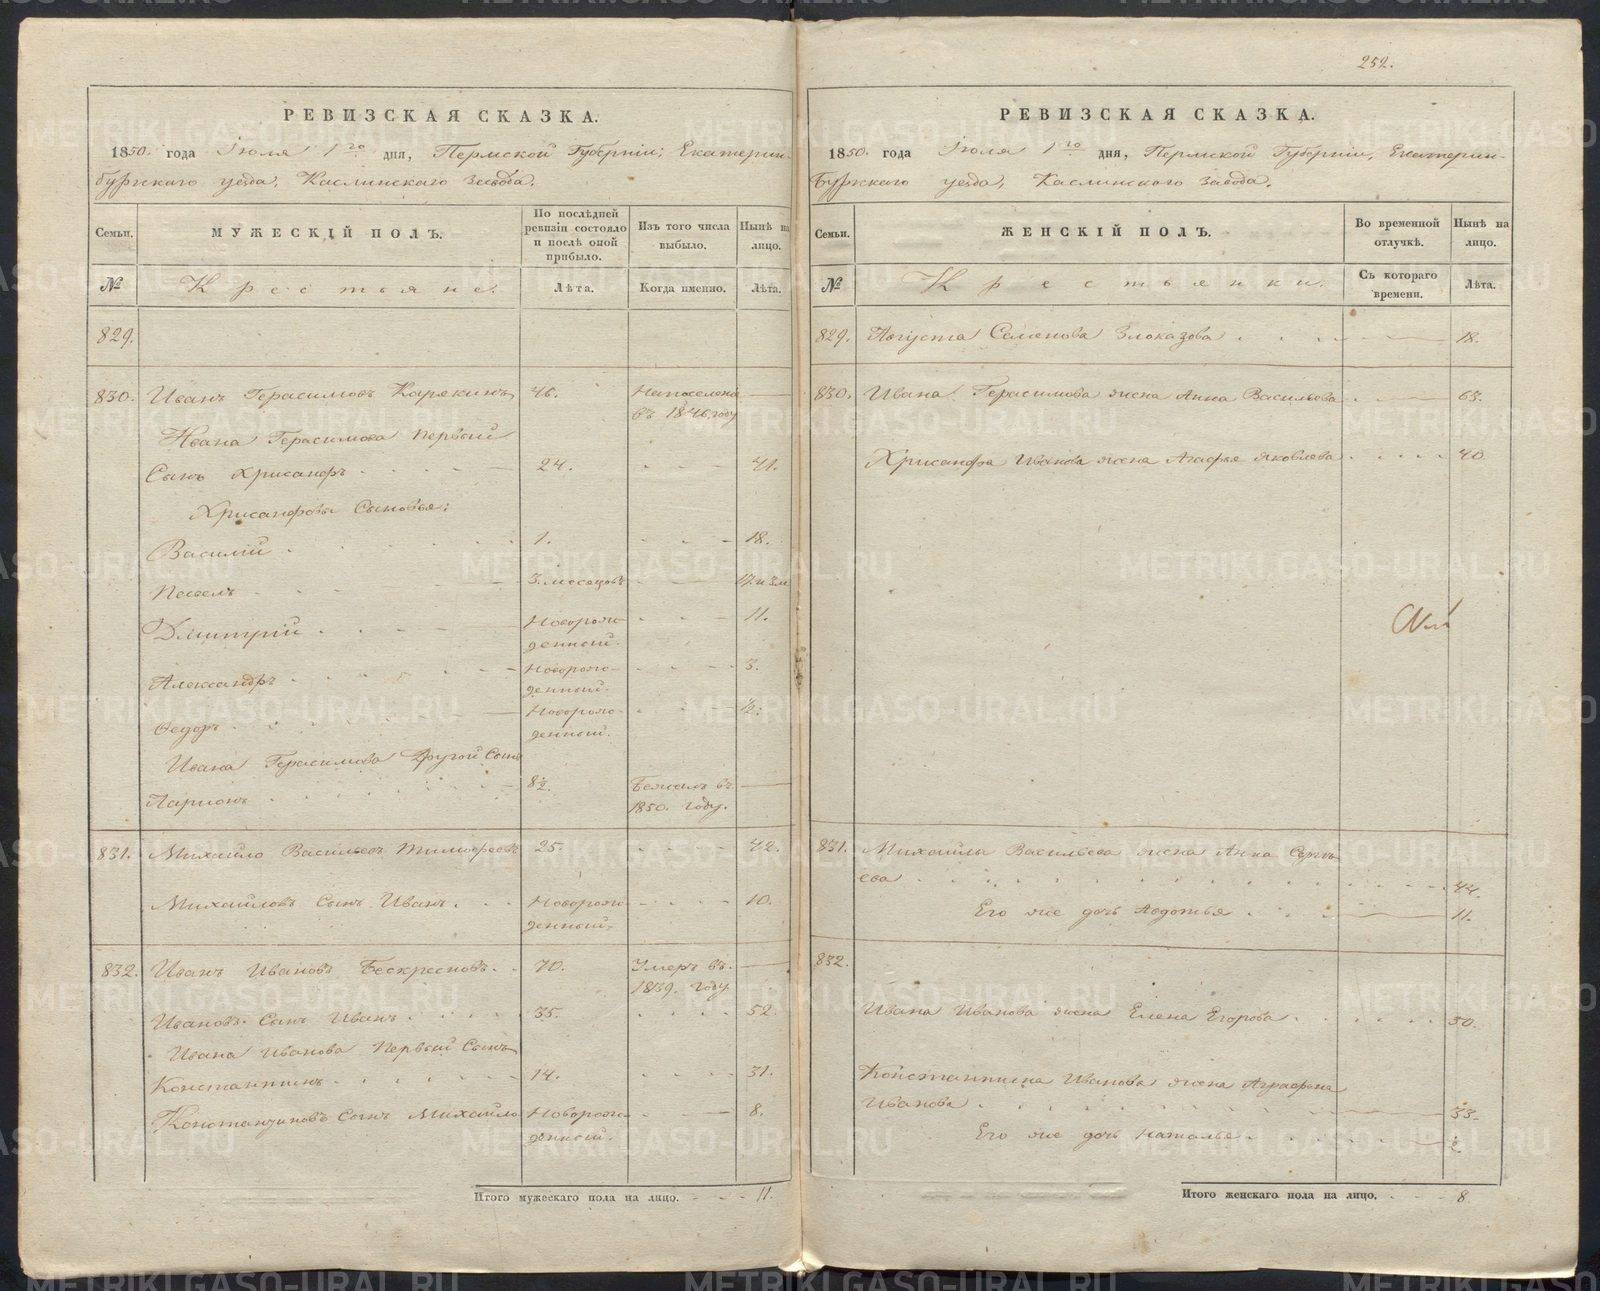 252.
РЕВИЗСКАЯ СКАЗКА.
1850. года Іюля 1го дня, Пермской Губерніи, Екатерин-
бургскаго уезда, Каслинскаго Завода.
Семьи.
МУЖЕСКІЙ ПОЛЪ.
По послѣдней ревизіи состояло и послѣ оной прибыло.
Изъ того числа выбыло.
Нынѣ на лицо.
№
Крестьяне.
Лѣта.
Когда именно.
Лѣта.
829.
830. Иванъ Герасимовъ Карякинъ 46. На поселеніи
въ 1846 году
Ивана Герасимова первый
Сынъ Хрисанфъ 24. 41.
Хрисанфовы Сыновья:
Василій 1. 18.
Павелъ 3. месецовъ 17 и 3 м
Дмитрій Новорож- 11.
денный.
Александръ Новорож- 3.
денный.
Федоръ Новорож- ½.
денный.
Ивана Герасимова Другой Сынъ
Ларионъ 8½. Бежалъ въ
1850. году.
831. Михайло Васильевъ Тимофеевъ 25. 42.
Михайловъ Сынъ Иванъ Новорож- 10.
денный.
832. Иванъ Ивановъ Бескресновъ 70. Умеръ въ
1839. году
Ивановъ Сынъ Иванъ 35. 52
Ивана Иванова Первый Сынъ
Константинъ 14. 31.
Константиновъ Сынъ Михайло Новорож- 8.
денный.
Итого мужескаго пола на лицо. 11.
РЕВИЗСКАЯ СКАЗКА.
1850. года Іюля 1го дня, Пермской Губерніи, Екатерин-
бургскаго уезда, Каслинскаго завода.
Семьи.
ЖЕНСКІЙ ПОЛЪ.
Во временной отлучкѣ.
Нынѣ на лицо.
№
Крестьянки.
Съ котораго времени.
Лѣта.
829. Августа Семенова Злоказова 18.
830. Ивана Герасимова жена Анна Васильева 63.
Хрисанфа Иванова жена Агафья Яковлева 40
831. Михайлы Васильева жена Анна Сергъ-
ева 44.
Его же дочь Авдотья 11.
832.
Ивана Иванова жена Елена Егорова 50.
Константина Иванова жена Аграфена
Иванова 33.
Его же дочь Наталья ½
Итого женскаго пола на лицо. 8
METRIKI.GASO-URAL.RU